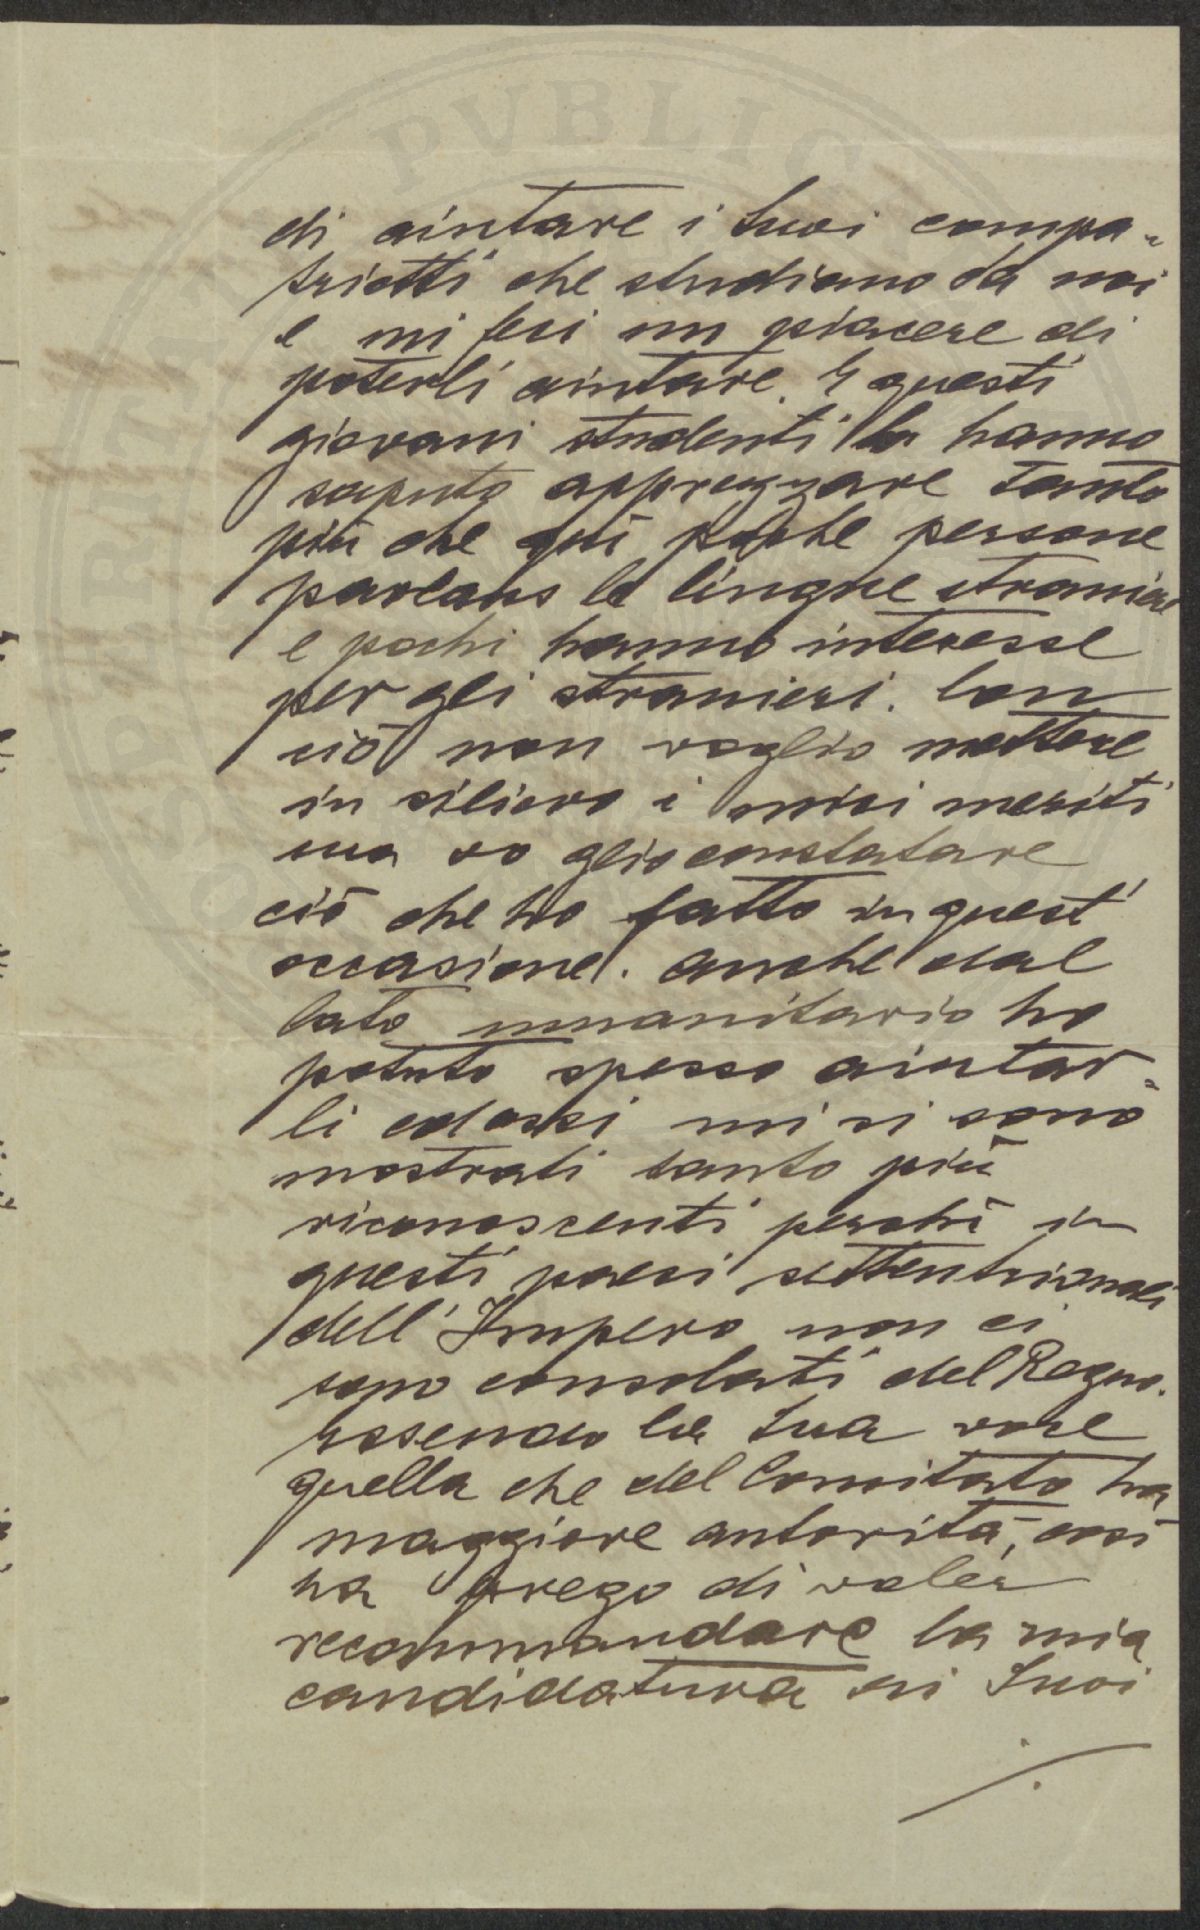 di aiutare i Suoi compa-
triotti che studiano da noi
e mi feci un piacere di
poterli aiutare. E questi
giovani studenti lo hanno
saputo apprezzare tanto
più che qui poche persone
parlano le lingue straniere
e pochi hanno interesse
per gli stranieri. Con
ciò non voglio mettere
in rilievo i miei meriti
ma voglio constatare
ciò che ho fatto in quest'
occasione. Anche dal
lato umanitario ho
potuto spesso aiutar-
li ed essi mi si sono
mostrati tanto più
riconoscenti perchè in
questi paesi settentrionali
dell'Impero non ci
sono consolati del Regno.
Essendo la Sua voce
quella che del Comitato ha
maggiore autorità, così
La prego di voler
recommandare la mia
candidatura ai Suoi
./.
PVBLIC